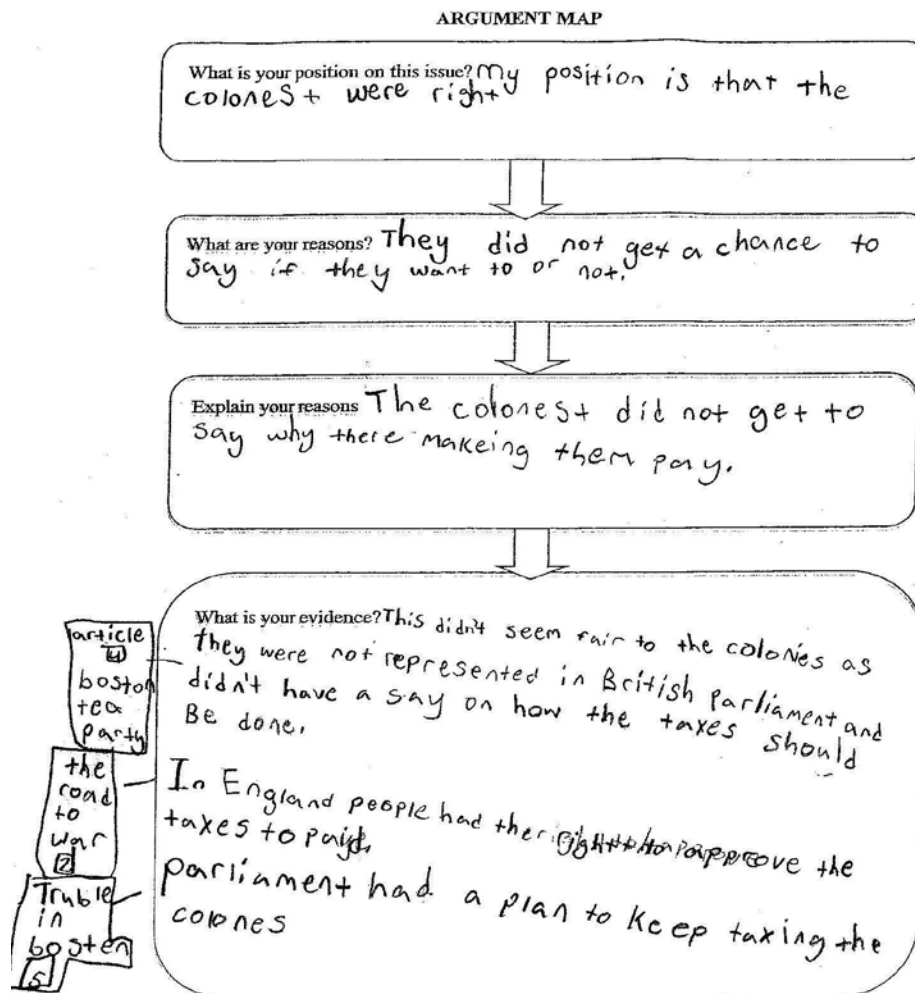 ARGUMENT MAP
What is your position on this issue? My position is that the
colonest were right
What are your reasons? They did not get a chance to
say if they want to or not.
Explain your reasons The colonest did not get to
say why there makeing them pay.
What is your evidence? This didn't seem fair to the colonies as
they were not represented in British parliament and
didn't have a say on how the taxes should
Be done.
In England people had the right to approve the
taxes to paid.
parliament had a plan to keep taxing the
colones
article
4
boston
tea
party
the
road
to
war
2
Truble
in
bosten
5